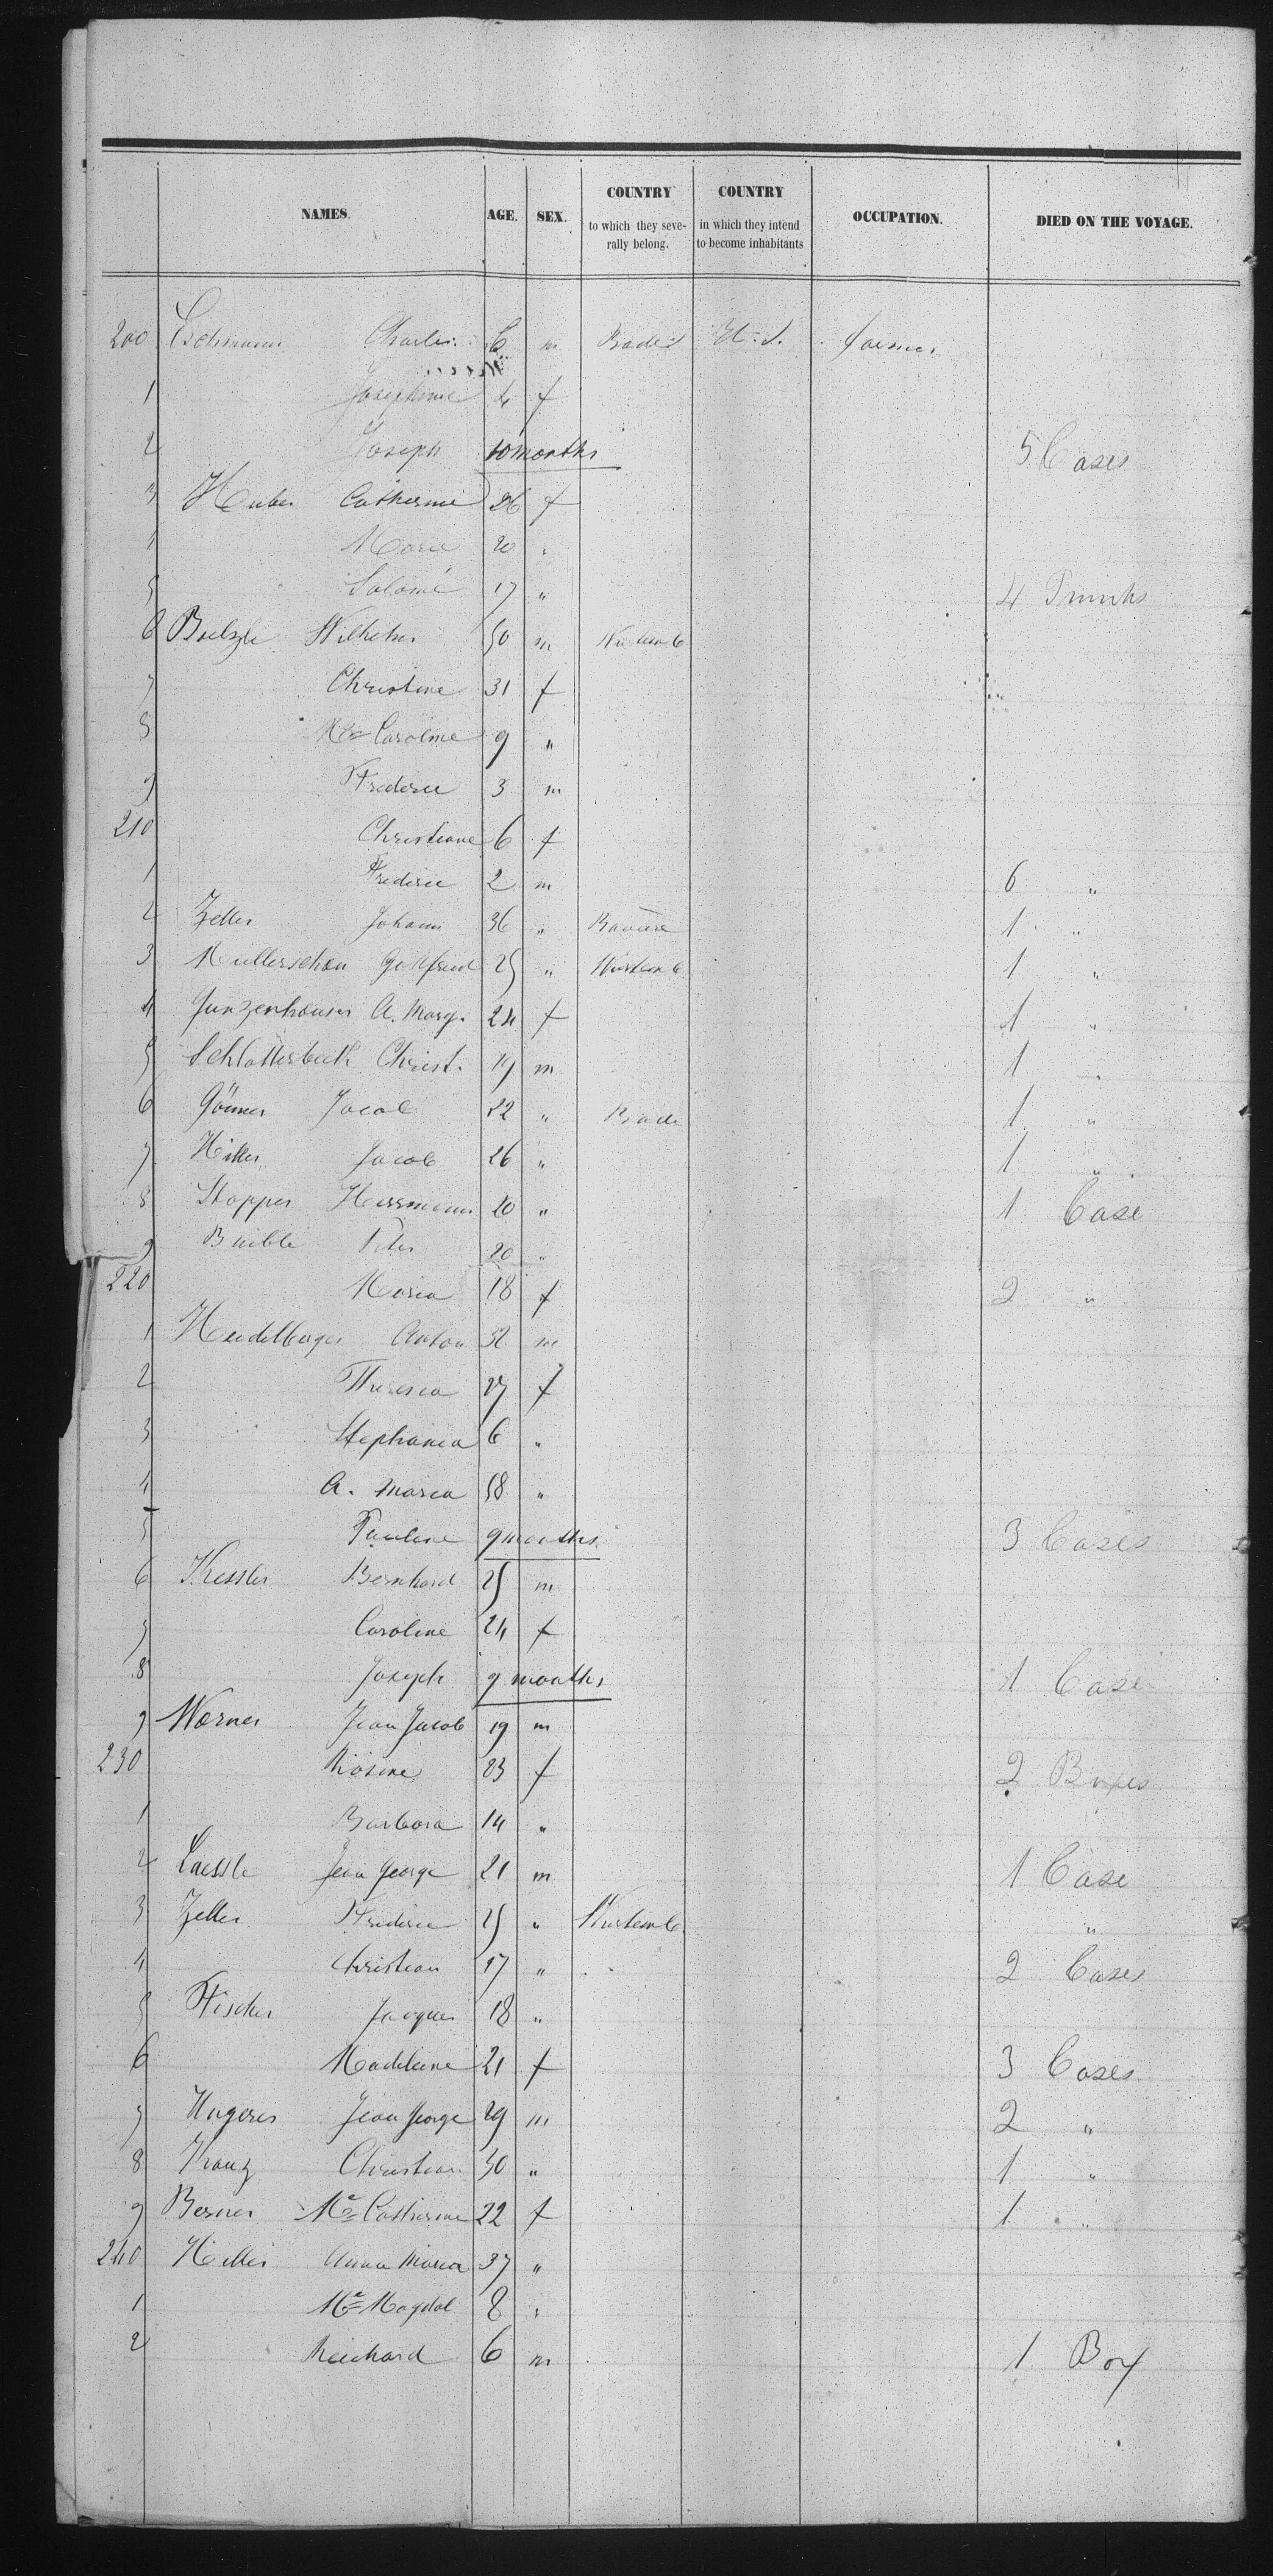 NAMES. AGE. SEX. COUNTRY to which they seve-rally belong. COUNTRY in which they intend to become inhabitants OCCUPATION. DIED ON THE VOYAGE.
200 Eschmann Charles 6 m Bade U.S. farmer
1 Josephine 4 f
2 Joseph 10 months 5 Cases
3 Huber Catherine 26 f
4 Maria 20 "
5 Salomé 17 " 4 Trunks
6 Wilhelm 50 m Wurtemb
7 Christine 31 f
8 Me Caroline 9 "
9 Frederic 3 m
210 Christiane 6 f
1 Frederic 2 m 6 "
2 Zeller Johann 36 " Baviere 1 "
3 Mullerschon Gottfried 25 " Wurtemb 1 "
4 Gunzenhauser A. Marg. 24 f 1 "
5 Schlotterbeck Christ. 19 m 1 "
6 Gönner Jacob 22 " Bade 1 "
7 Jacob 26 " 1 "
8 Stopper Herrmann 20 " 1 Case
9 Peter 20 "
220 Maria 18 f 2 "
1 Heidelberger Anton 32 m
2 Theresia 27 f
3 Stephania 6 "
4 A. Maria 58 "
5 Pauline 9 months 3 Cases
6 Kessler Bernhard 25 m
7 Caroline 24 f
8 Joseph 9 months 1 Case
9 Werner Jean Jacob 19 m
230 Rosine 23 f 2 Boxes
1 Barbara 14 "
2 Laessle Jean George 21 m 1 Case
3 Zeller Frederic 25 " Wurtemb. "
4 Christian 17 " 2 Cases
5 Fischer Jacques 18 "
6 Madeleine 21 f 3 Cases
7 Ungerer Jean George 29 m 2 "
8 Kranz Christian 30 " 1 "
9 Berner Me Catherine 22 f 1 "
240 Anna Maria 37 "
1 Me Magdal 8 "
2 Reichard 6 m 1 Box